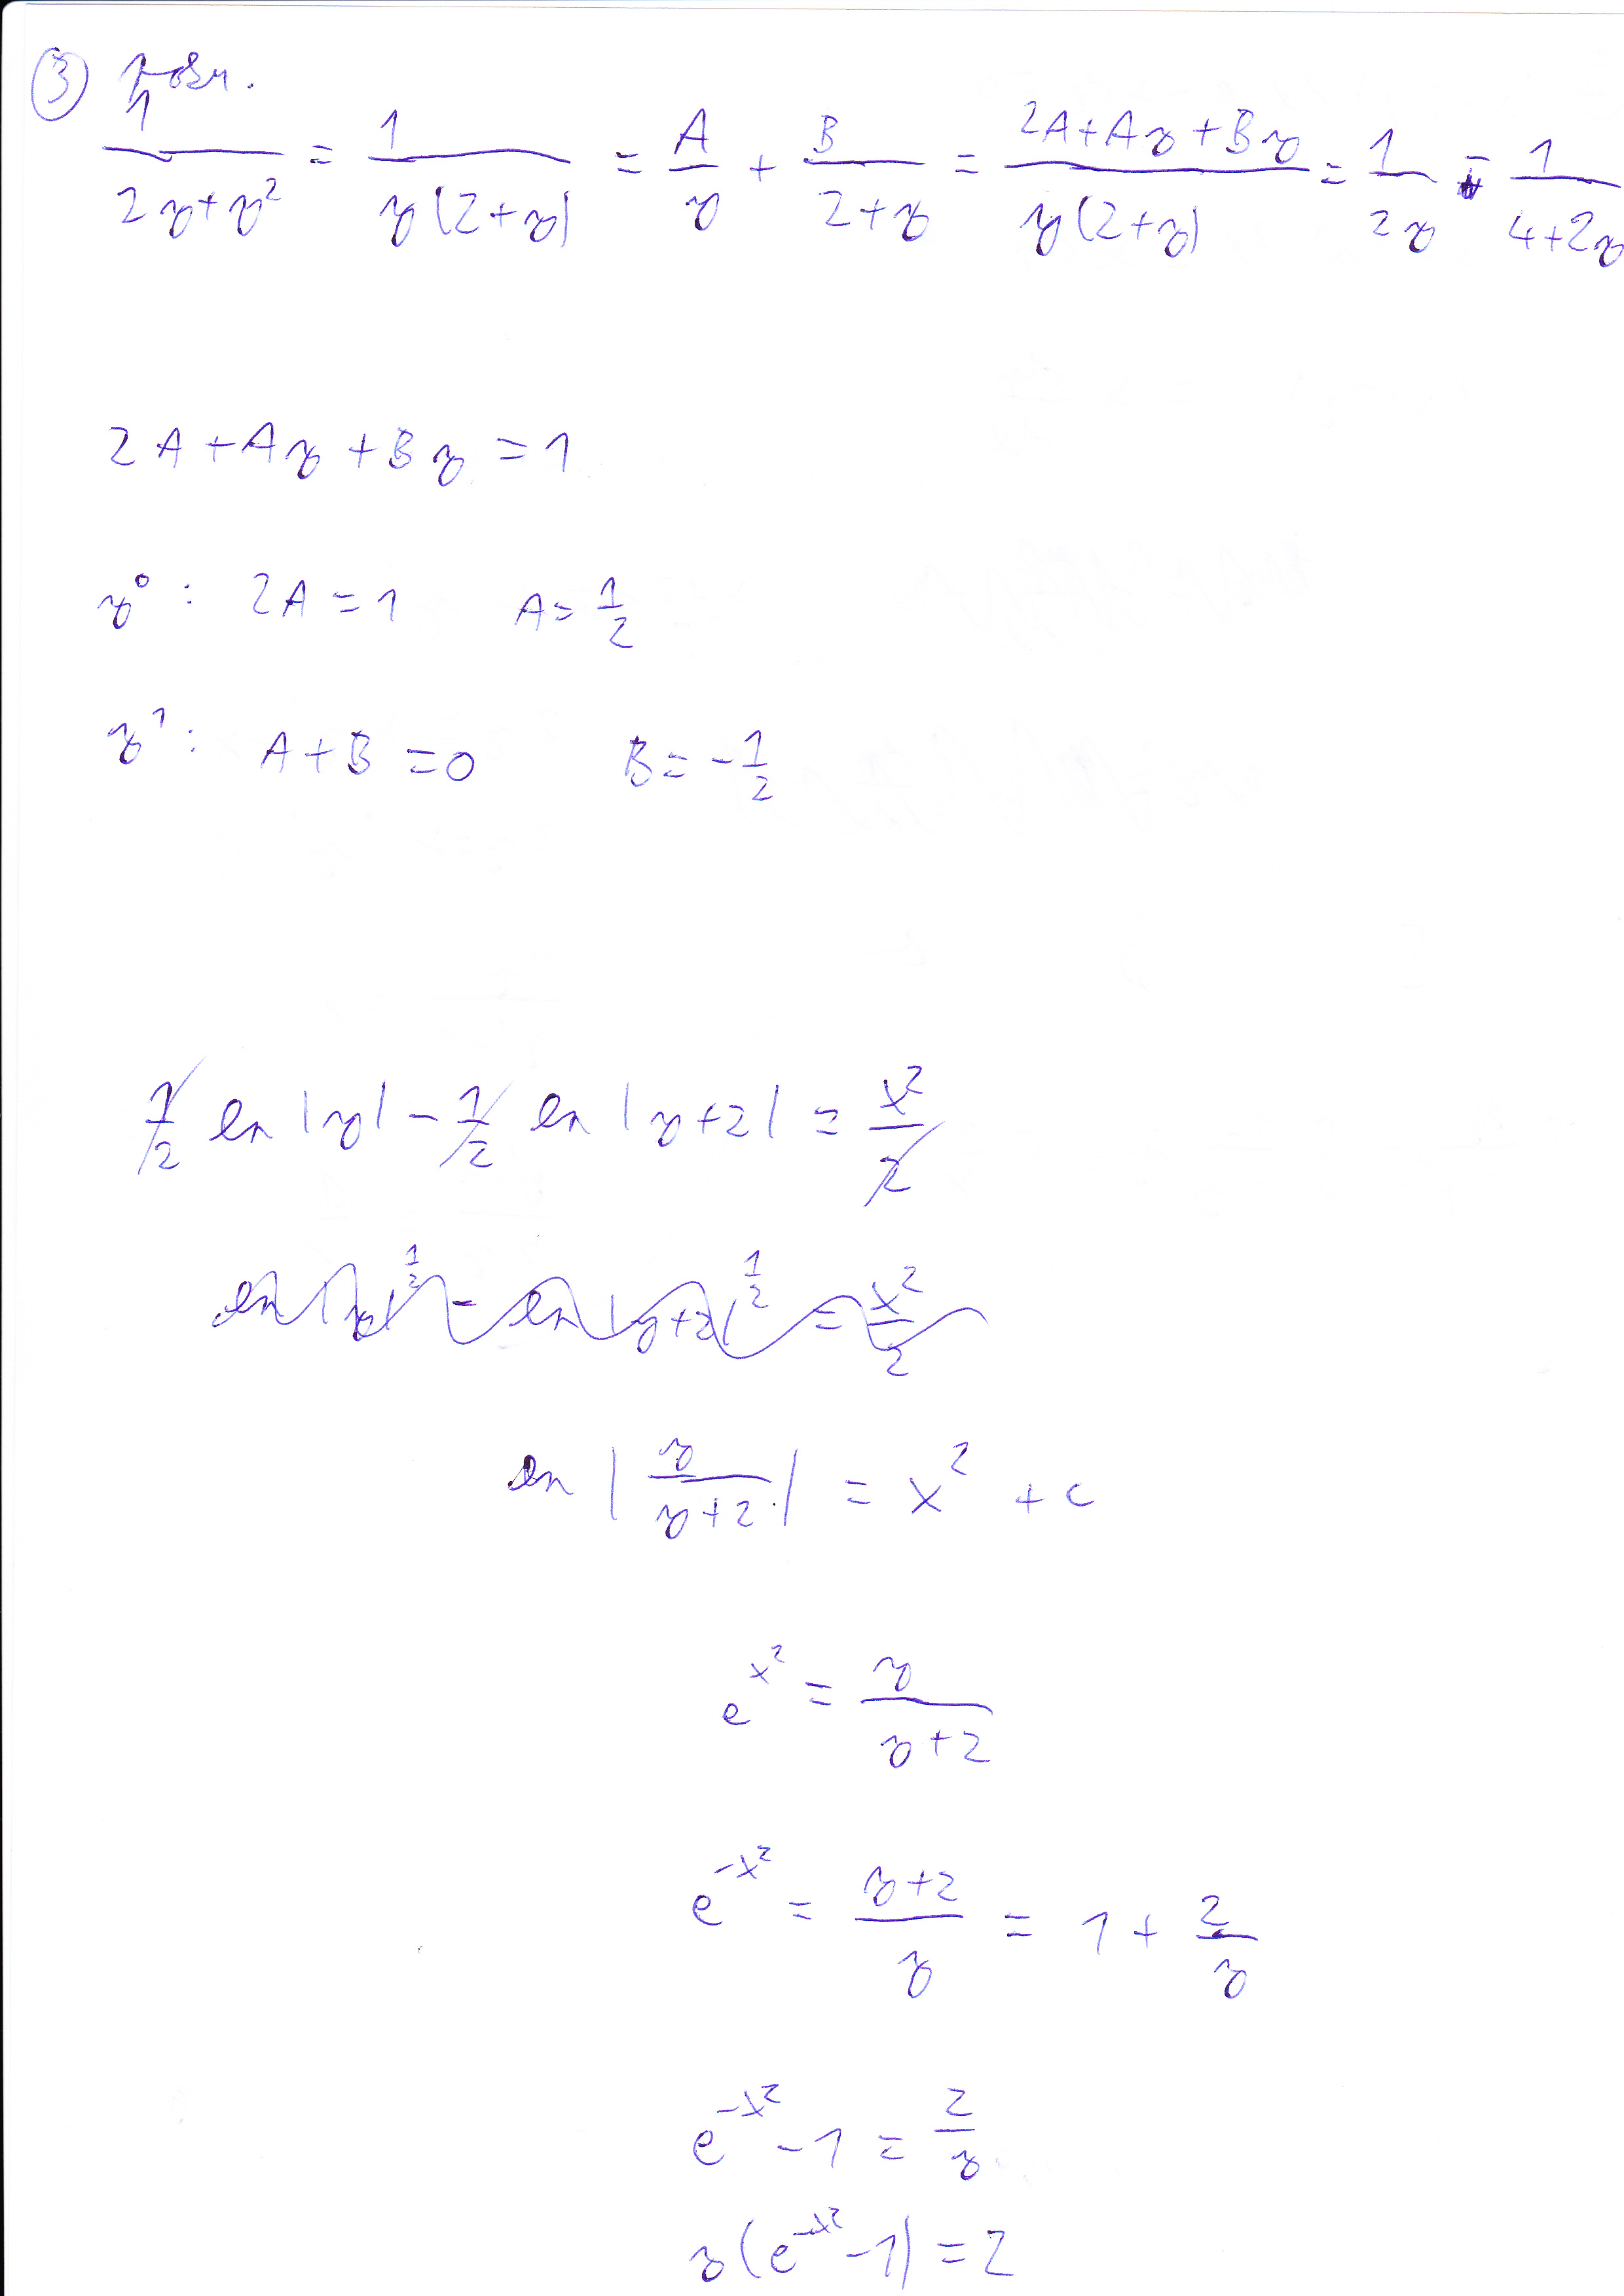 ③ pozn.
1/(2y+y²) = 1/(y(2+y)) = A/y + B/(2+y) = (2A+Ay+By)/(y(2+y)) = 1/(2y) - 1/(4+2y)
2A+Ay+By=1
y⁰: 2A=1 A=1/2
y¹: A+B=0 B=-1/2
1/2 ln|y| - 1/2 ln|y+2| = x²/2
ln|y|^(1/2) - ln|y+2|^(1/2) = x²/2
ln|y/(y+2)| = x² + c
e^(x²) = y/(y+2)
e^(-x²) = (y+2)/y = 1 + 2/y
e^(-x²) - 1 = 2/y
y(e^(-x²) - 1) = 2